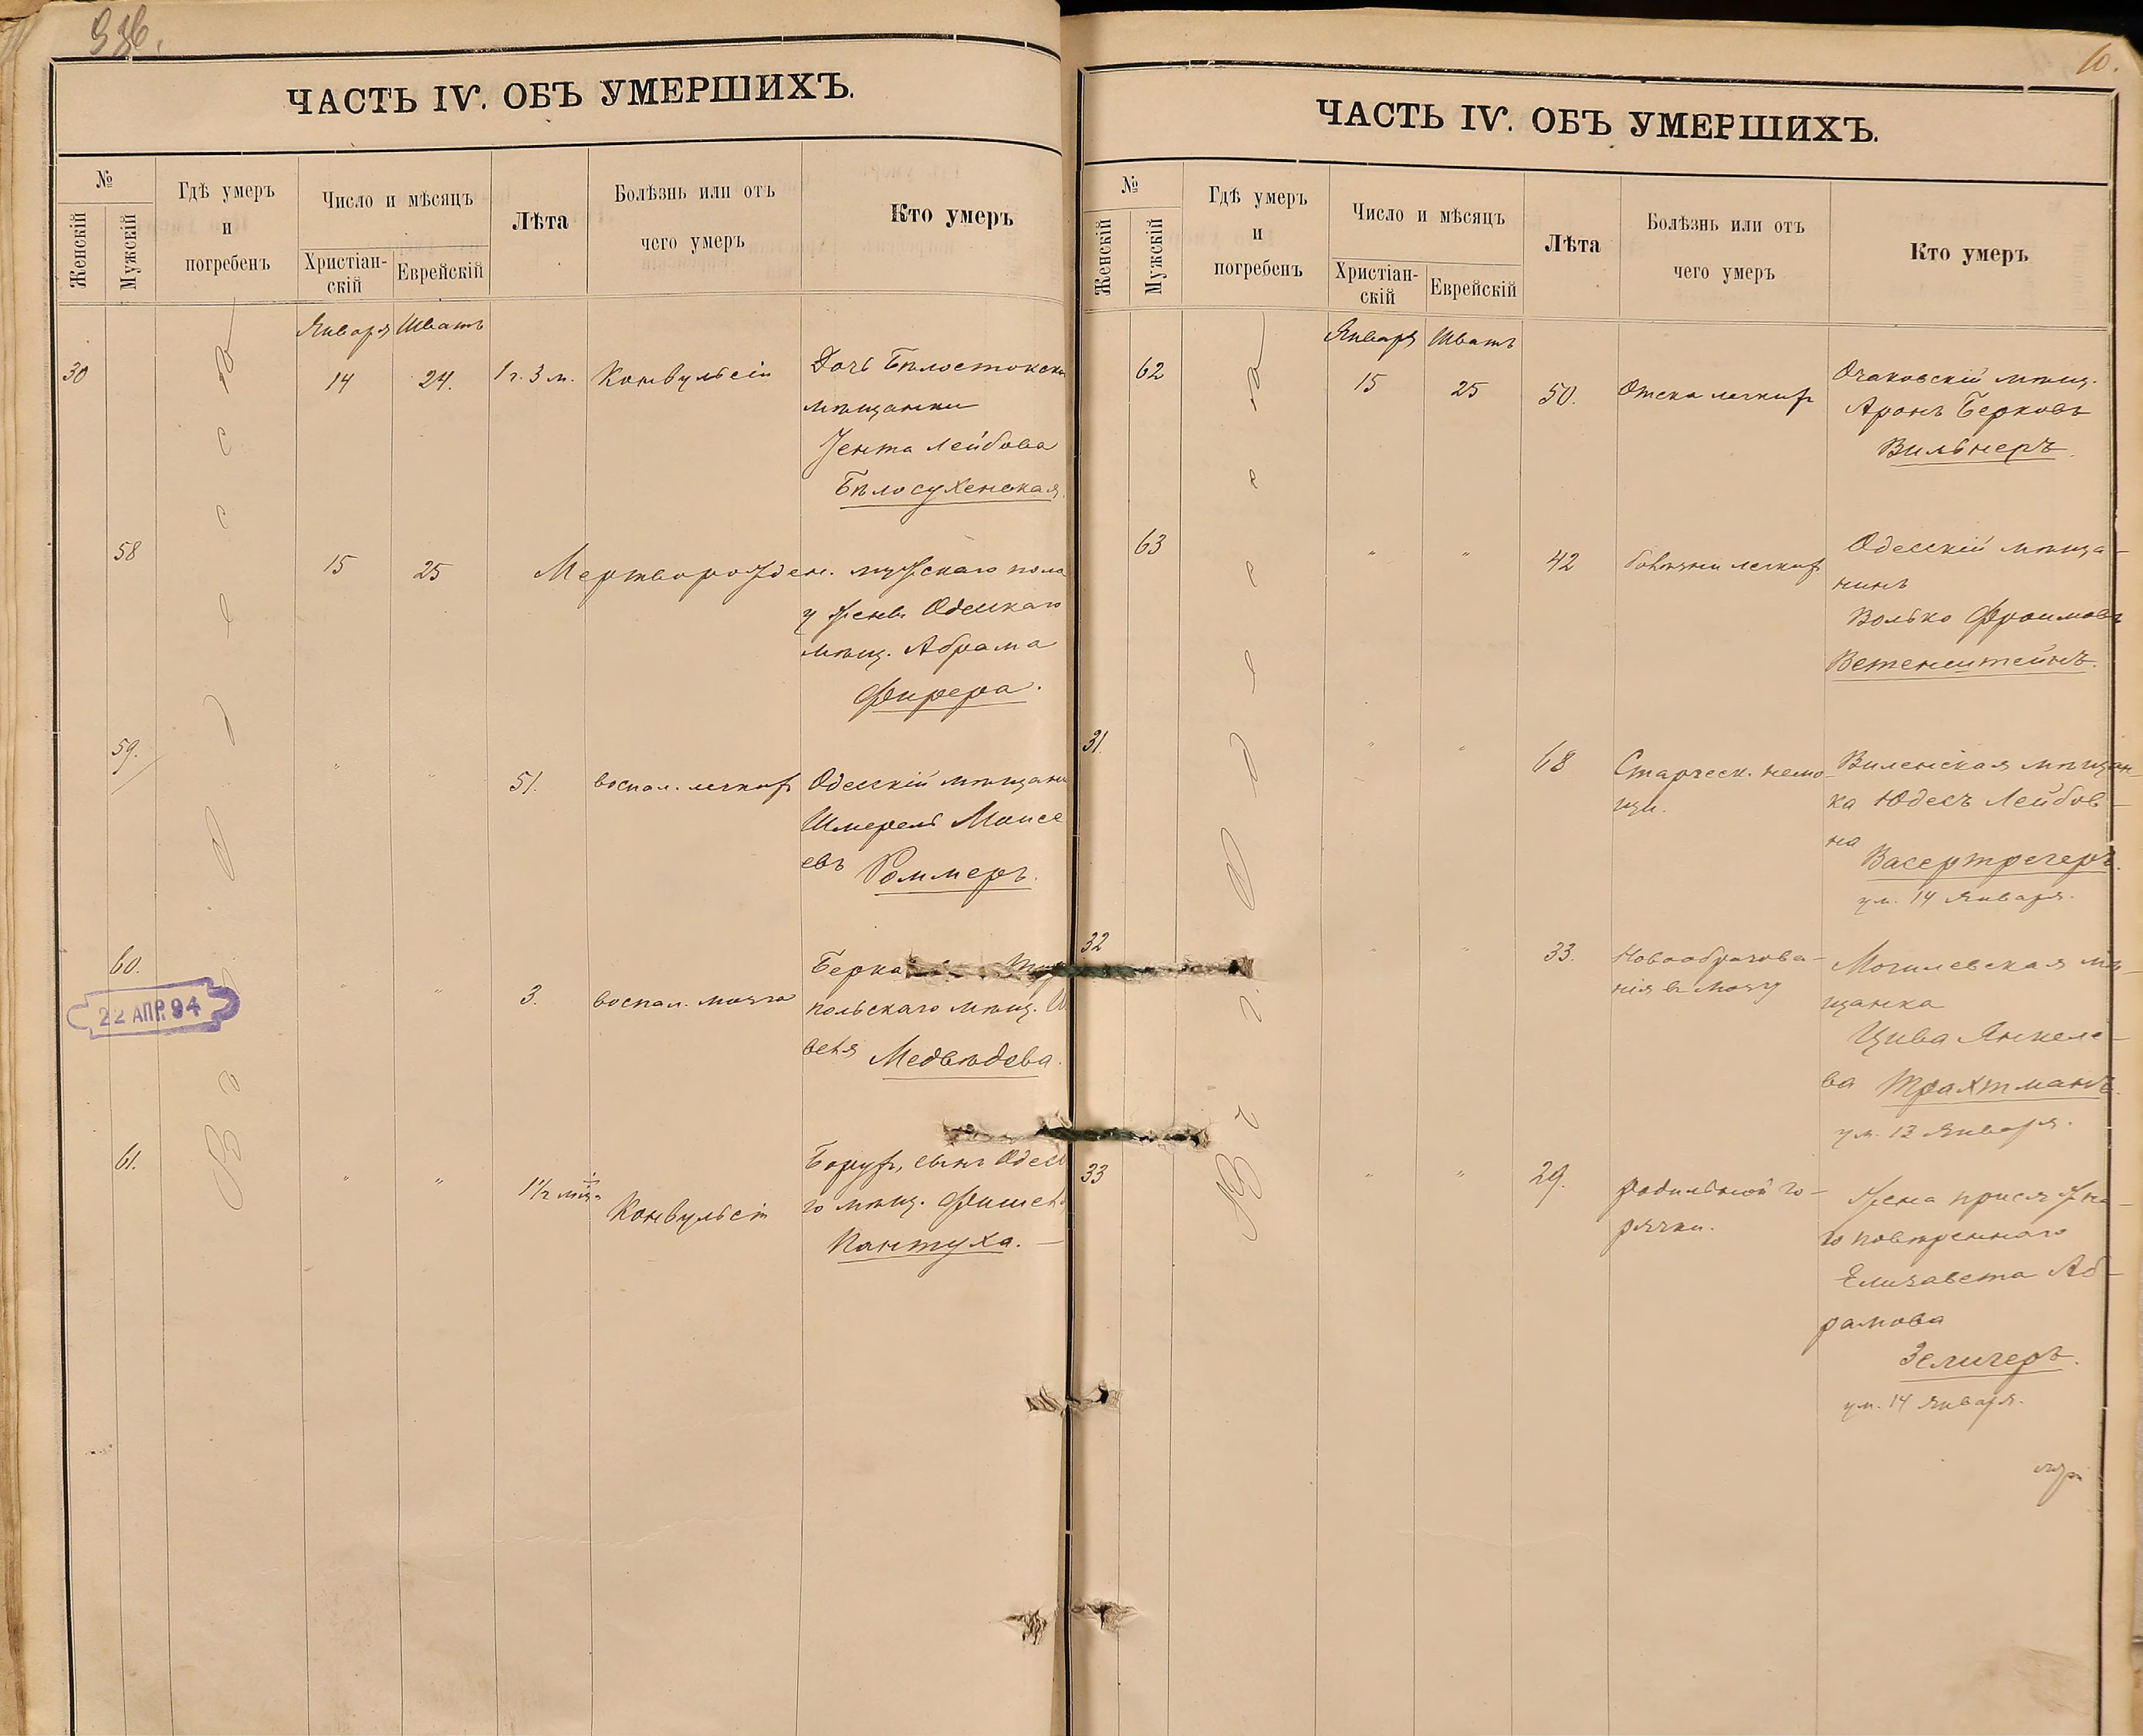 ЧАСТЬ IV. ОБЪ УМЕРШИХЪ.
№
Женскій
Мужскій
Гдѣ умеръ
и
погребенъ
Число и мѣсяцъ
Христіан-
скій
Еврейскій
Лѣта
Болѣзнь или отъ
чего умеръ
Кто умеръ
Въ г. Одессѣ
Января Шватъ
30
14
24.
1 г. 3 м.
Конвульсіи
Дочь Бѣлостокск
мѣщанки
Іента Лейбова
Бѣлосухенская.
58
15
25
Мертворожден. мужскаго пола
у жены Одесскаго
мѣщ. Абрама
Фирера.
59.
"
"
51.
воспал. легкихъ
Одесскій мѣщани
Шмерель Моисе
евъ Роммеръ.
60.
"
"
3.
воспал. мозга
Берка
польскаго мѣщ.
Медвѣдева.
22 АПР. 94
61.
"
"
1½ мѣс.
Конвульсіи
Борухъ, сынъ Одесс
го мѣщ. Фишеля
Пантуха.
10.
ЧАСТЬ IV. ОБЪ УМЕРШИХЪ.
№
Женскій
Мужскій
Гдѣ умеръ
и
погребенъ
Число и мѣсяцъ
Христіан-
скій
Еврейскій
Лѣта
Болѣзнь или отъ
чего умеръ
Кто умеръ
Въ г. Одессѣ
Января Шватъ
62
15
25
50.
Отека легкихъ
Очаковскій мѣщ.
Аронъ Берковъ
Вильнеръ.
63
"
"
42
легкихъ
Одесскій мѣща-
нинъ
Волько Фроимовъ
Ветенштейнъ.
31.
"
"
68
Старческ. немо-
щи.
Виленская мѣщан-
ка Юдесъ Лейбов-
на
Васертрегеръ.
ум. 14 Января.
32
"
"
33.
Новообразова-
нія въ мозгу
Могилевская мѣ-
щанка
Цива Янкеле-
ва Трахтманъ.
ум. 13 Января.
33
"
"
29.
родильной го-
рячки.
Жена присяжна-
го повѣреннаго
Елизавета Аб-
рамова
Зелигеръ.
ум. 14 Января.